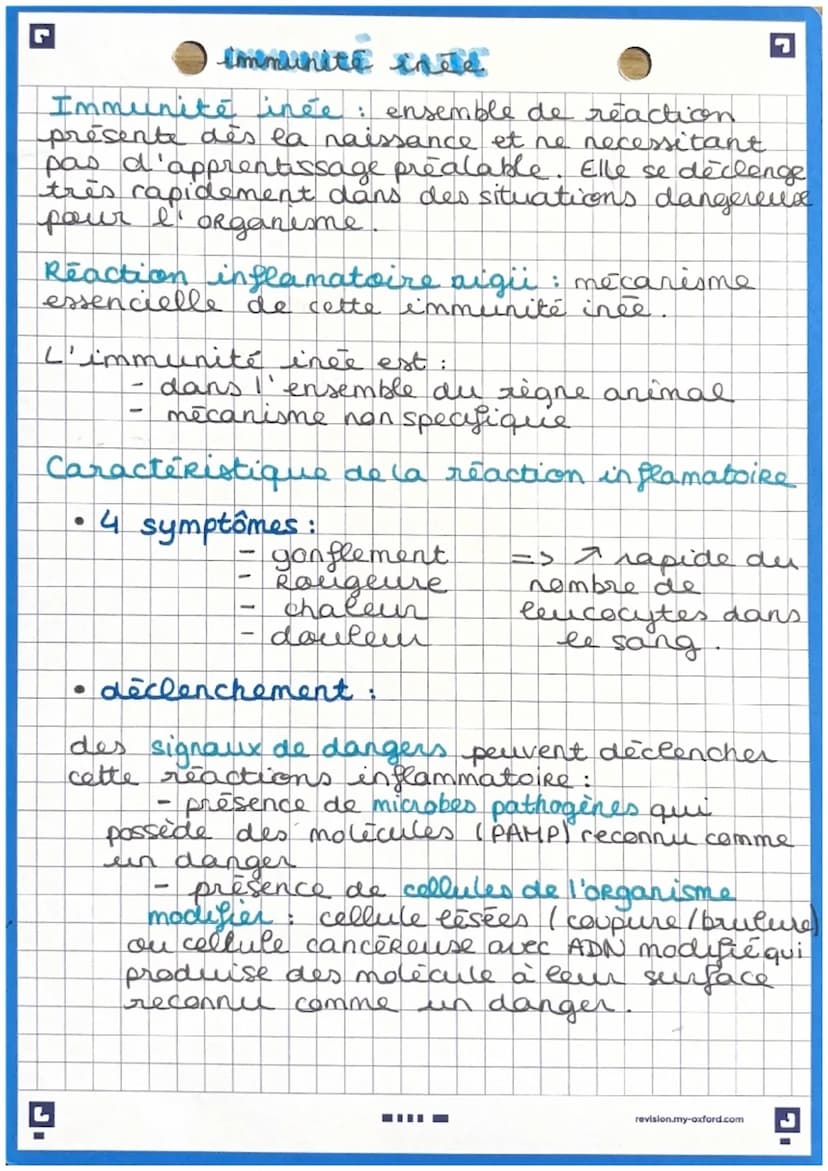 immunité inée.
Immunité inée : ensemble de réaction
présente dès la naissance et ne necessitant
pas d'apprentissage préalable. Elle se déclenge
très rapidement dans des situations dangereuse
pour l'organisme.
Réaction inflamatoire aigüi : mécanisme
essencielle de cette immunité inée.
L'immunité inée est :
- dans l'ensemble du règne animal
- mécanisme non specifique
Caractéristique de la réaction inflamatoire
• 4 symptômes :
- gonflement => ↗ rapide du
- Rougeure nombre de
- chaleur leucocytes dans
- douleur le sang.
• déclenchement :
des signaux de dangers peuvent déclencher
cette réactions inflammatoire :
- présence de microbes pathogènes qui
possède des molécules (PAMP) reconnu comme
un danger
- présence de cellules de l'organisme
modifier : cellule lésées (coupure/brulure)
ou cellule cancéreuse avec ADN modifié qui
produise des molécule à leur surface
reconnu comme un danger.
revision.my-oxford.com